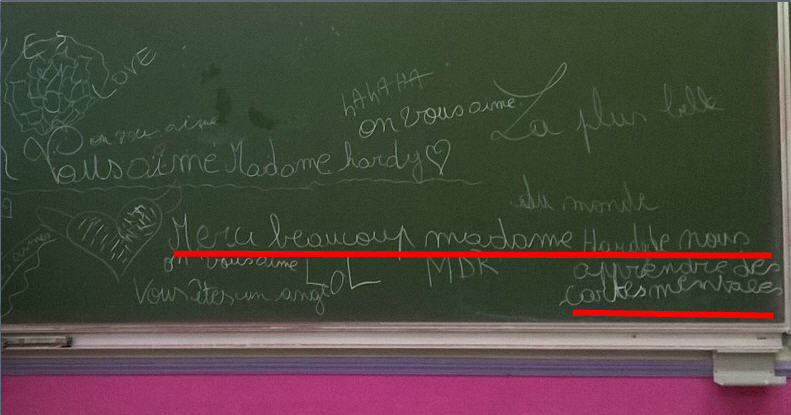 LOVE
hAhAHA
on vous aime
La plus belle
on vous aime
Vous aime Madame hardy
du monde
Merci beaucoup madame Hard de nous
apprendre des
cartes mentales
on vous aime LOL
MDR
Vous êtes un ange